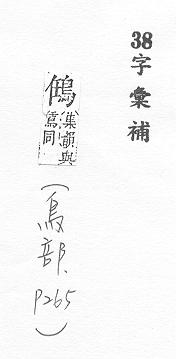 38字彙補
集韻與
同
(鳥部, P265)